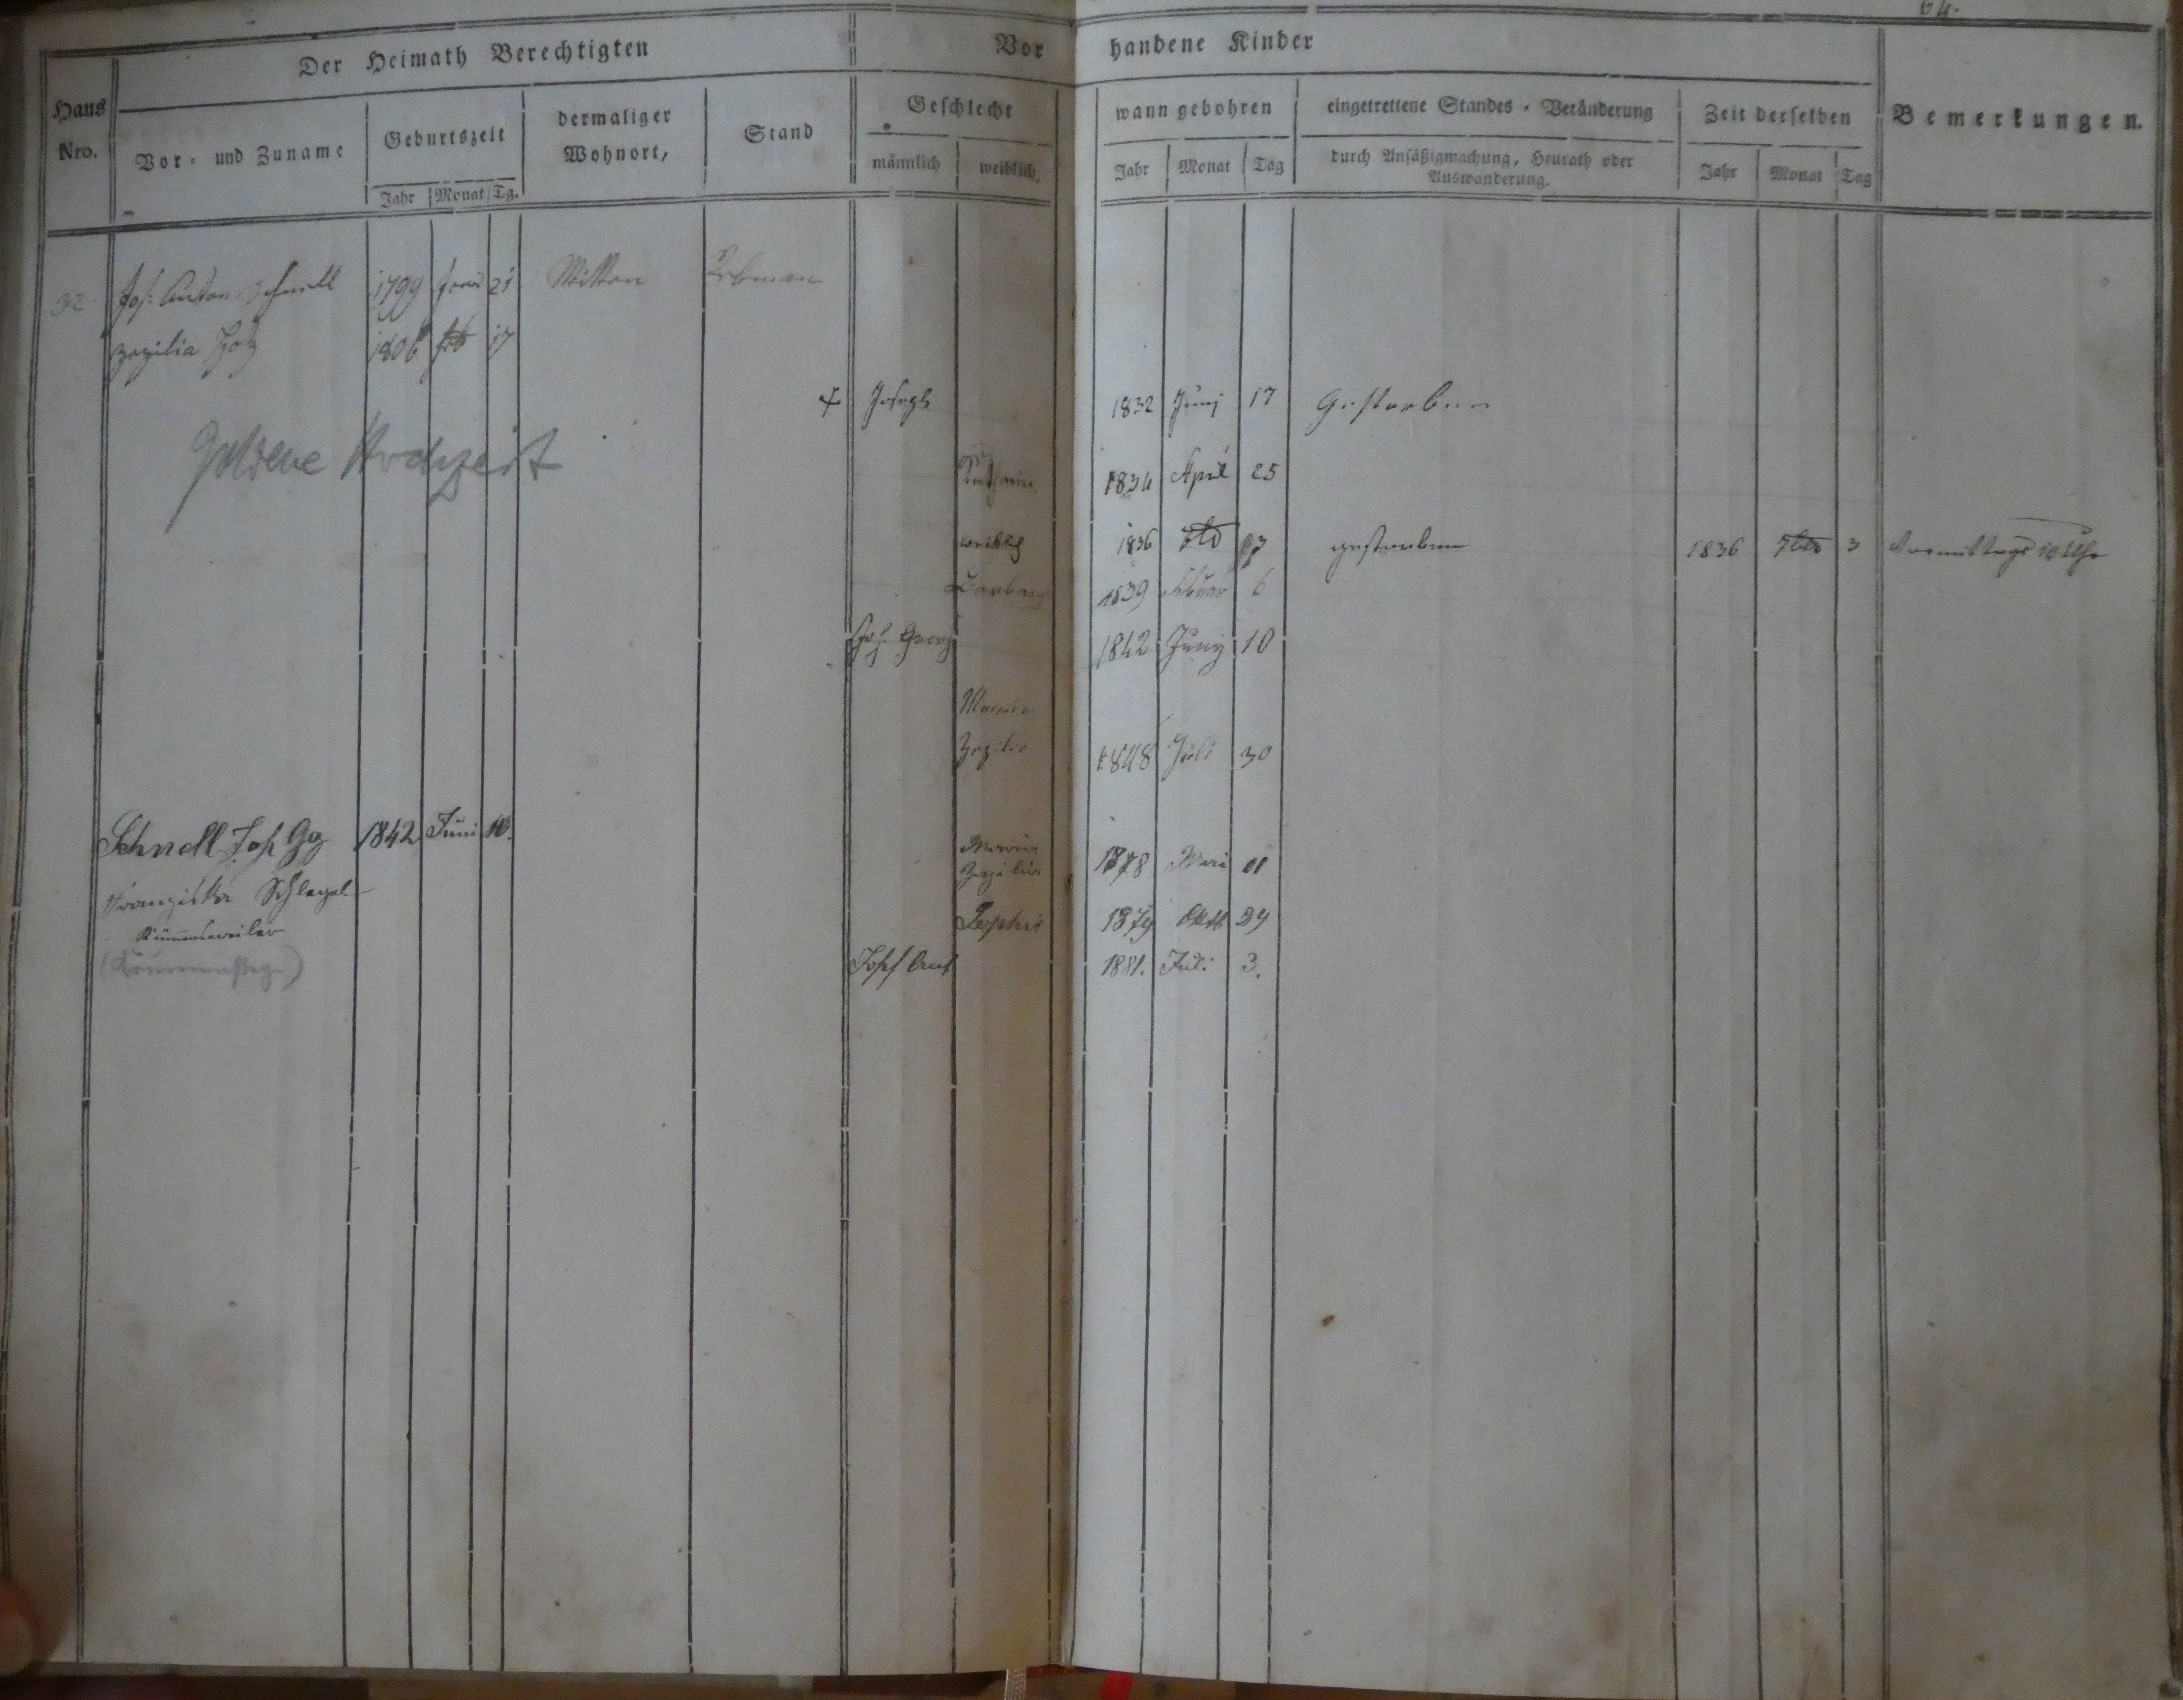 64.
Der Heimath Berechtigten
Vorhandene Kinder
Haus Nro.
Vor- und Zuname
Geburtszeit
Jahr Monat Tg.
dermaliger Wohnort,
Stand
Geschlecht
männlich weiblich.
wann gebohren
Jahr Monat Tag
eingetrettene Standes-Veränderung
durch Ansäßigmachung, Heurath oder
Auswanderung.
Zeit derselben
Jahr Monat Tag
Bemerkungen.
32 Jos: Anton Schnell 1799 21 Witten
Zezilia 1806 feb 17
Joseph 1832 Junj 17 Gestorben
Goldene Hochzeit
Katharina 1834 April 25
weiblich 1836 3 gestorben 1836 3 Vormittags 10 Uhr
Barbara 1839 Februar 6
Joh. Georg 1842 Junj 10
Maria
Zezilia 1848 Juli 30
Schnell Joh Gg 1842 Juni 10.
Maria
Zezilia 1878 Mai
Franziska Schlegel
Sophie 1879 Oktb 29
Kümmertsweiler
Josef Ant 1881. Juli 3.